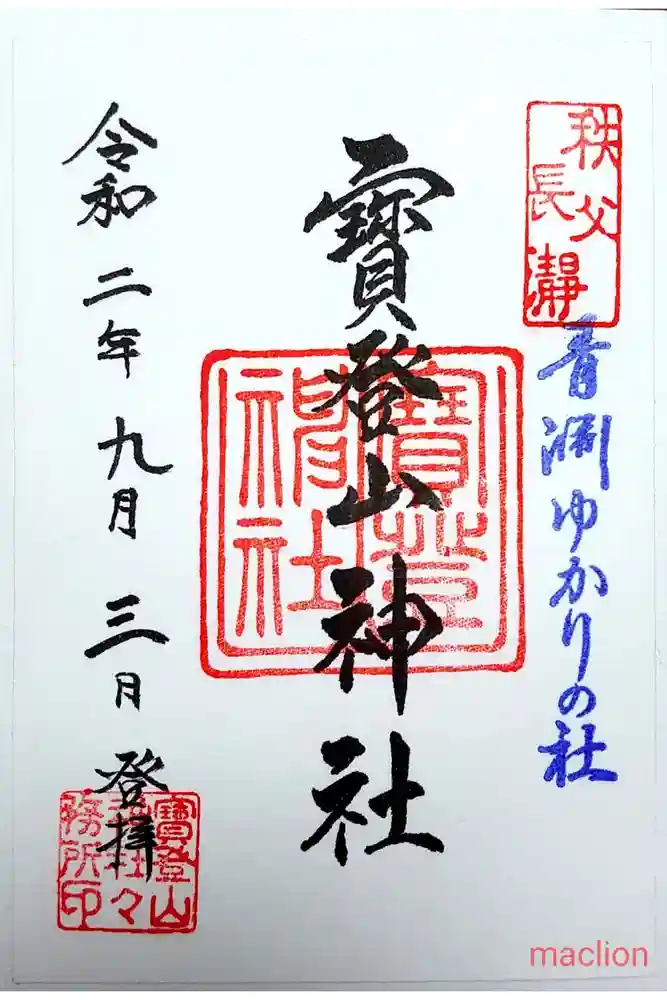 秩父
長瀞
青渕ゆかりの社
寶登山神社
令和二年九月三日 登拝
寶登山
神社々
務所印
maclion